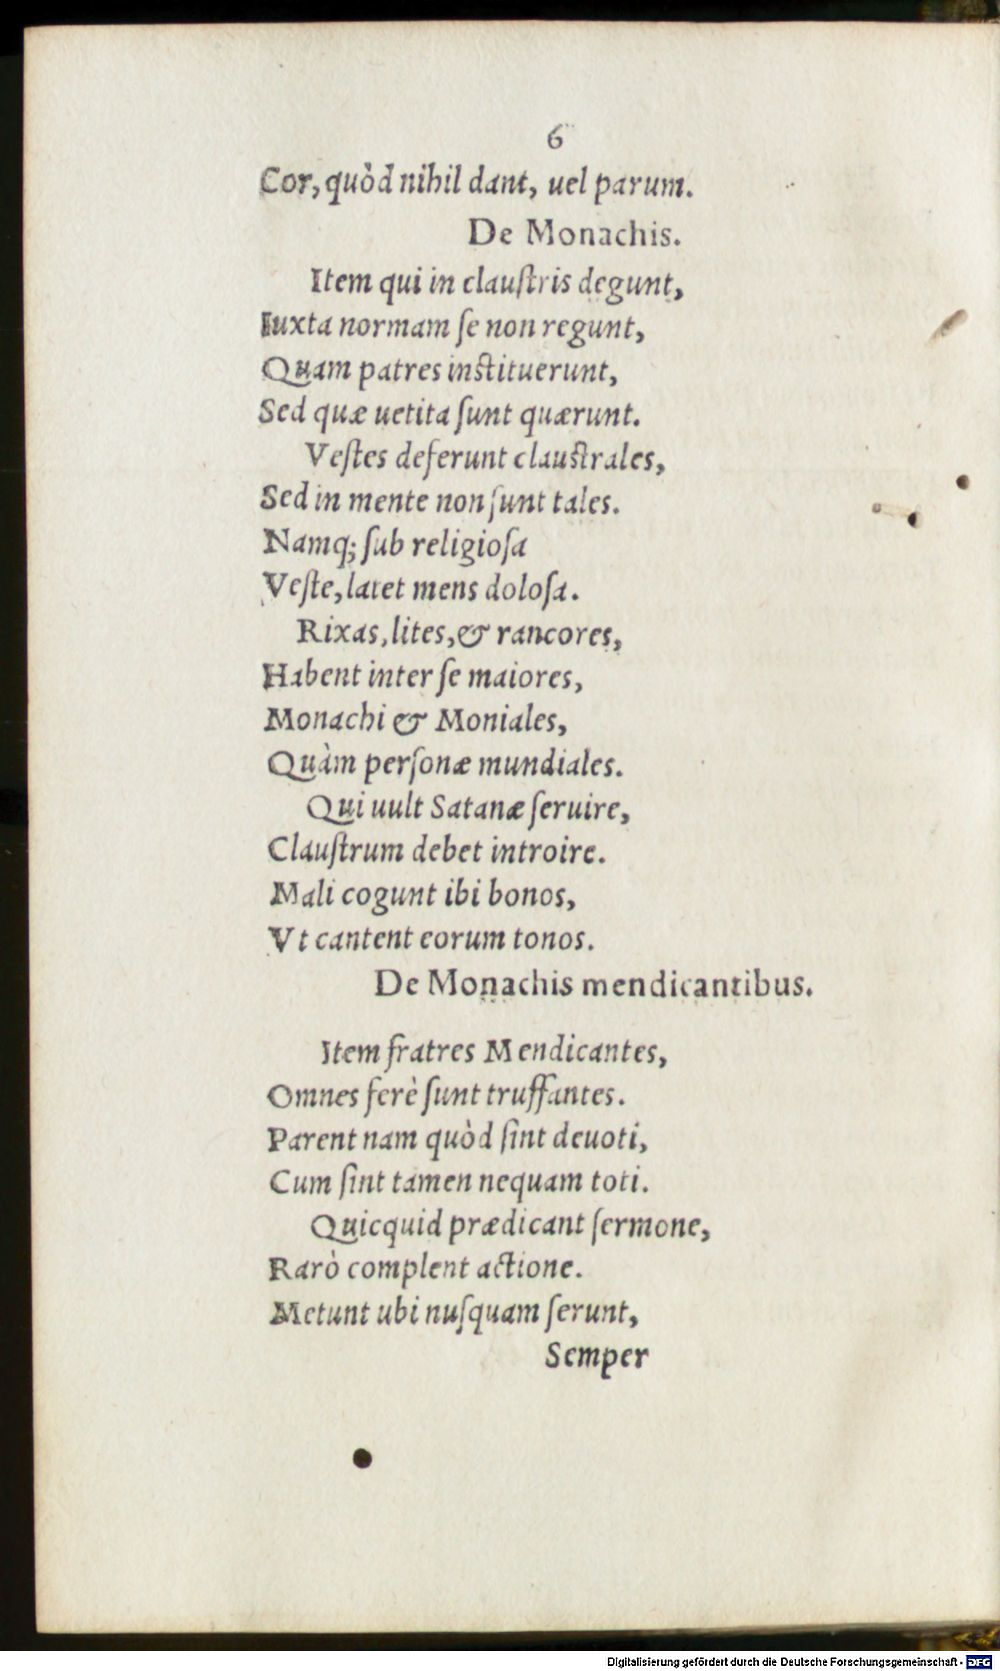 6
Cor, quòd nihil dant, uel parum.
De Monachis.
Item qui in clauſtris degunt,
Iuxta normam ſe non regunt,
Quam patres inſtituerunt,
Sed quæ uetita ſunt quærunt.
Veſtes deferunt clauſtrales,
Sed in mente non ſunt tales.
Namq; ſub religioſa
Veſte, latet mens doloſa.
Rixas, lites, & rancores,
Habent inter ſe maiores,
Monachi & Moniales,
Quàm perſonæ mundiales.
Qui uult Satanæ ſeruire,
Clauſtrum debet introire.
Mali cogunt ibi bonos,
Vt cantent eorum tonos.
De Monachis mendicantibus.
Item fratres Mendicantes,
Omnes ferè ſunt truffantes.
Parent nam quòd ſint deuoti,
Cum ſint tamen nequam toti.
Quicquid prædicant ſermone,
Rarò complent actione.
Metunt ubi nuſquam ſerunt,
Semper
Digitalisierung gefördert durch die Deutsche Forschungsgemeinschaft - DFG